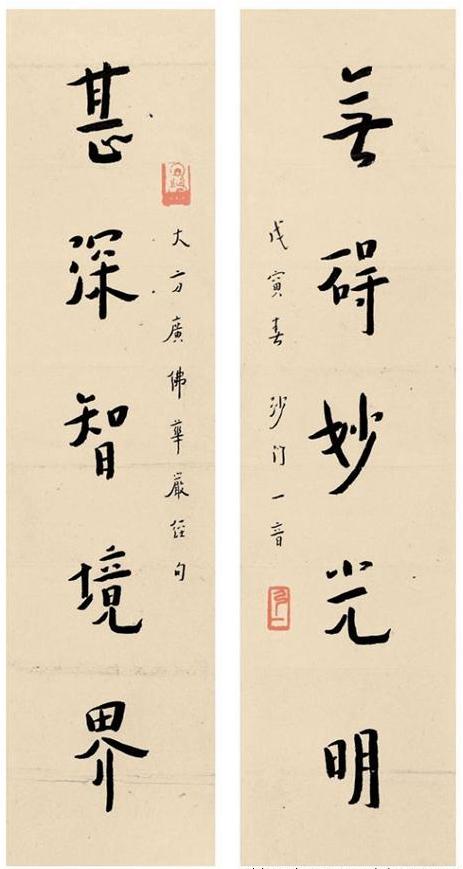 無碍妙光明
戊寅春 沙門一音
弘一
大方廣佛華嚴經句
甚深智境界